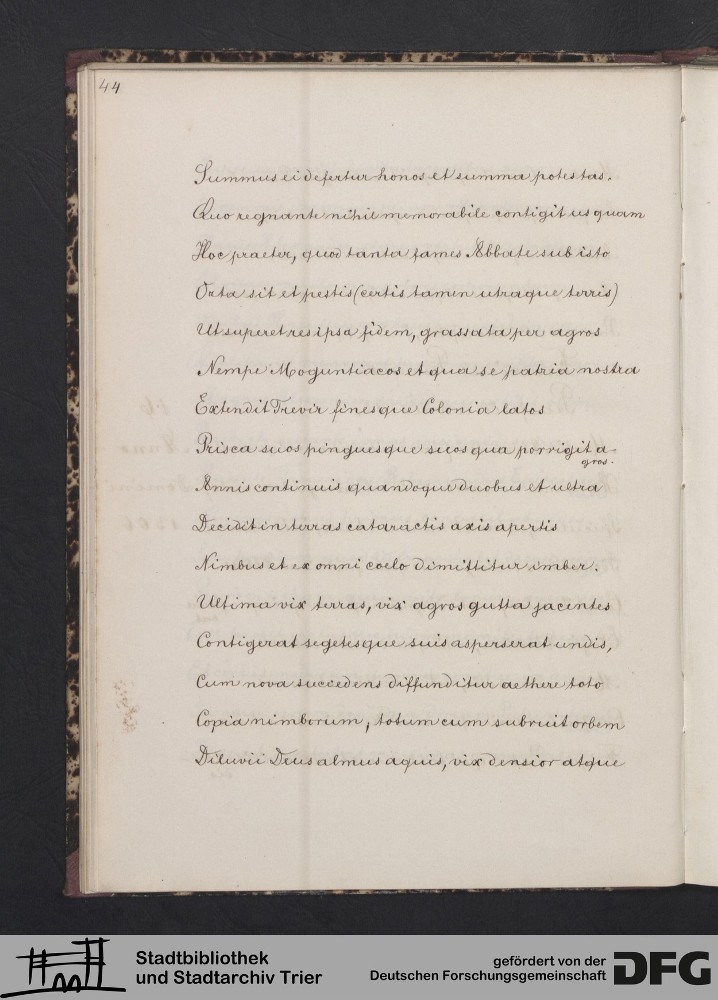 44
Summus ei defertur honos et summa potestas.
Quo regnante nihil memorabile contigit usquam
Hoc praeter, quod tanta fames Abbate sub isto
Orta sit et pestis (certis tamen utraque terris)
Ut superet res ipsa fidem, grassata per agros
Nempe Moguntiacos et qua se patria nostra
Extendit Trevir finesque Colonia latos
Prisca suos pinguesque sucos qua porrigit a-
gros.
Annis continuis quandoque duobus et ultra
Decidit in terras cataractis axis apertis
Nimbus et ex omni coelo dimittitur imber.
Ultima vix terras, vix agros gutta jacentes
Contigerat segetesque suis asperserat undis,
Cum nova succedens diffunditur aethere toto
Copia nimborum, totum cum subruit orbem
Diluvii Deus almus aquis, vix densior atque
Stadtbibliothek
und Stadtarchiv Trier
gefördert von der
Deutschen Forschungsgemeinschaft
DFG